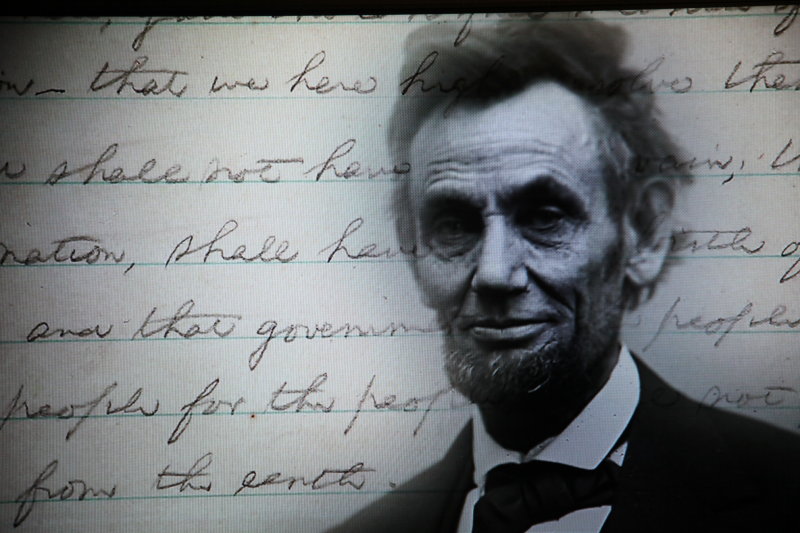 that we here high resolve
shall not have vain;
nation, shall have
and that govern people
people for the people not
from the earth.